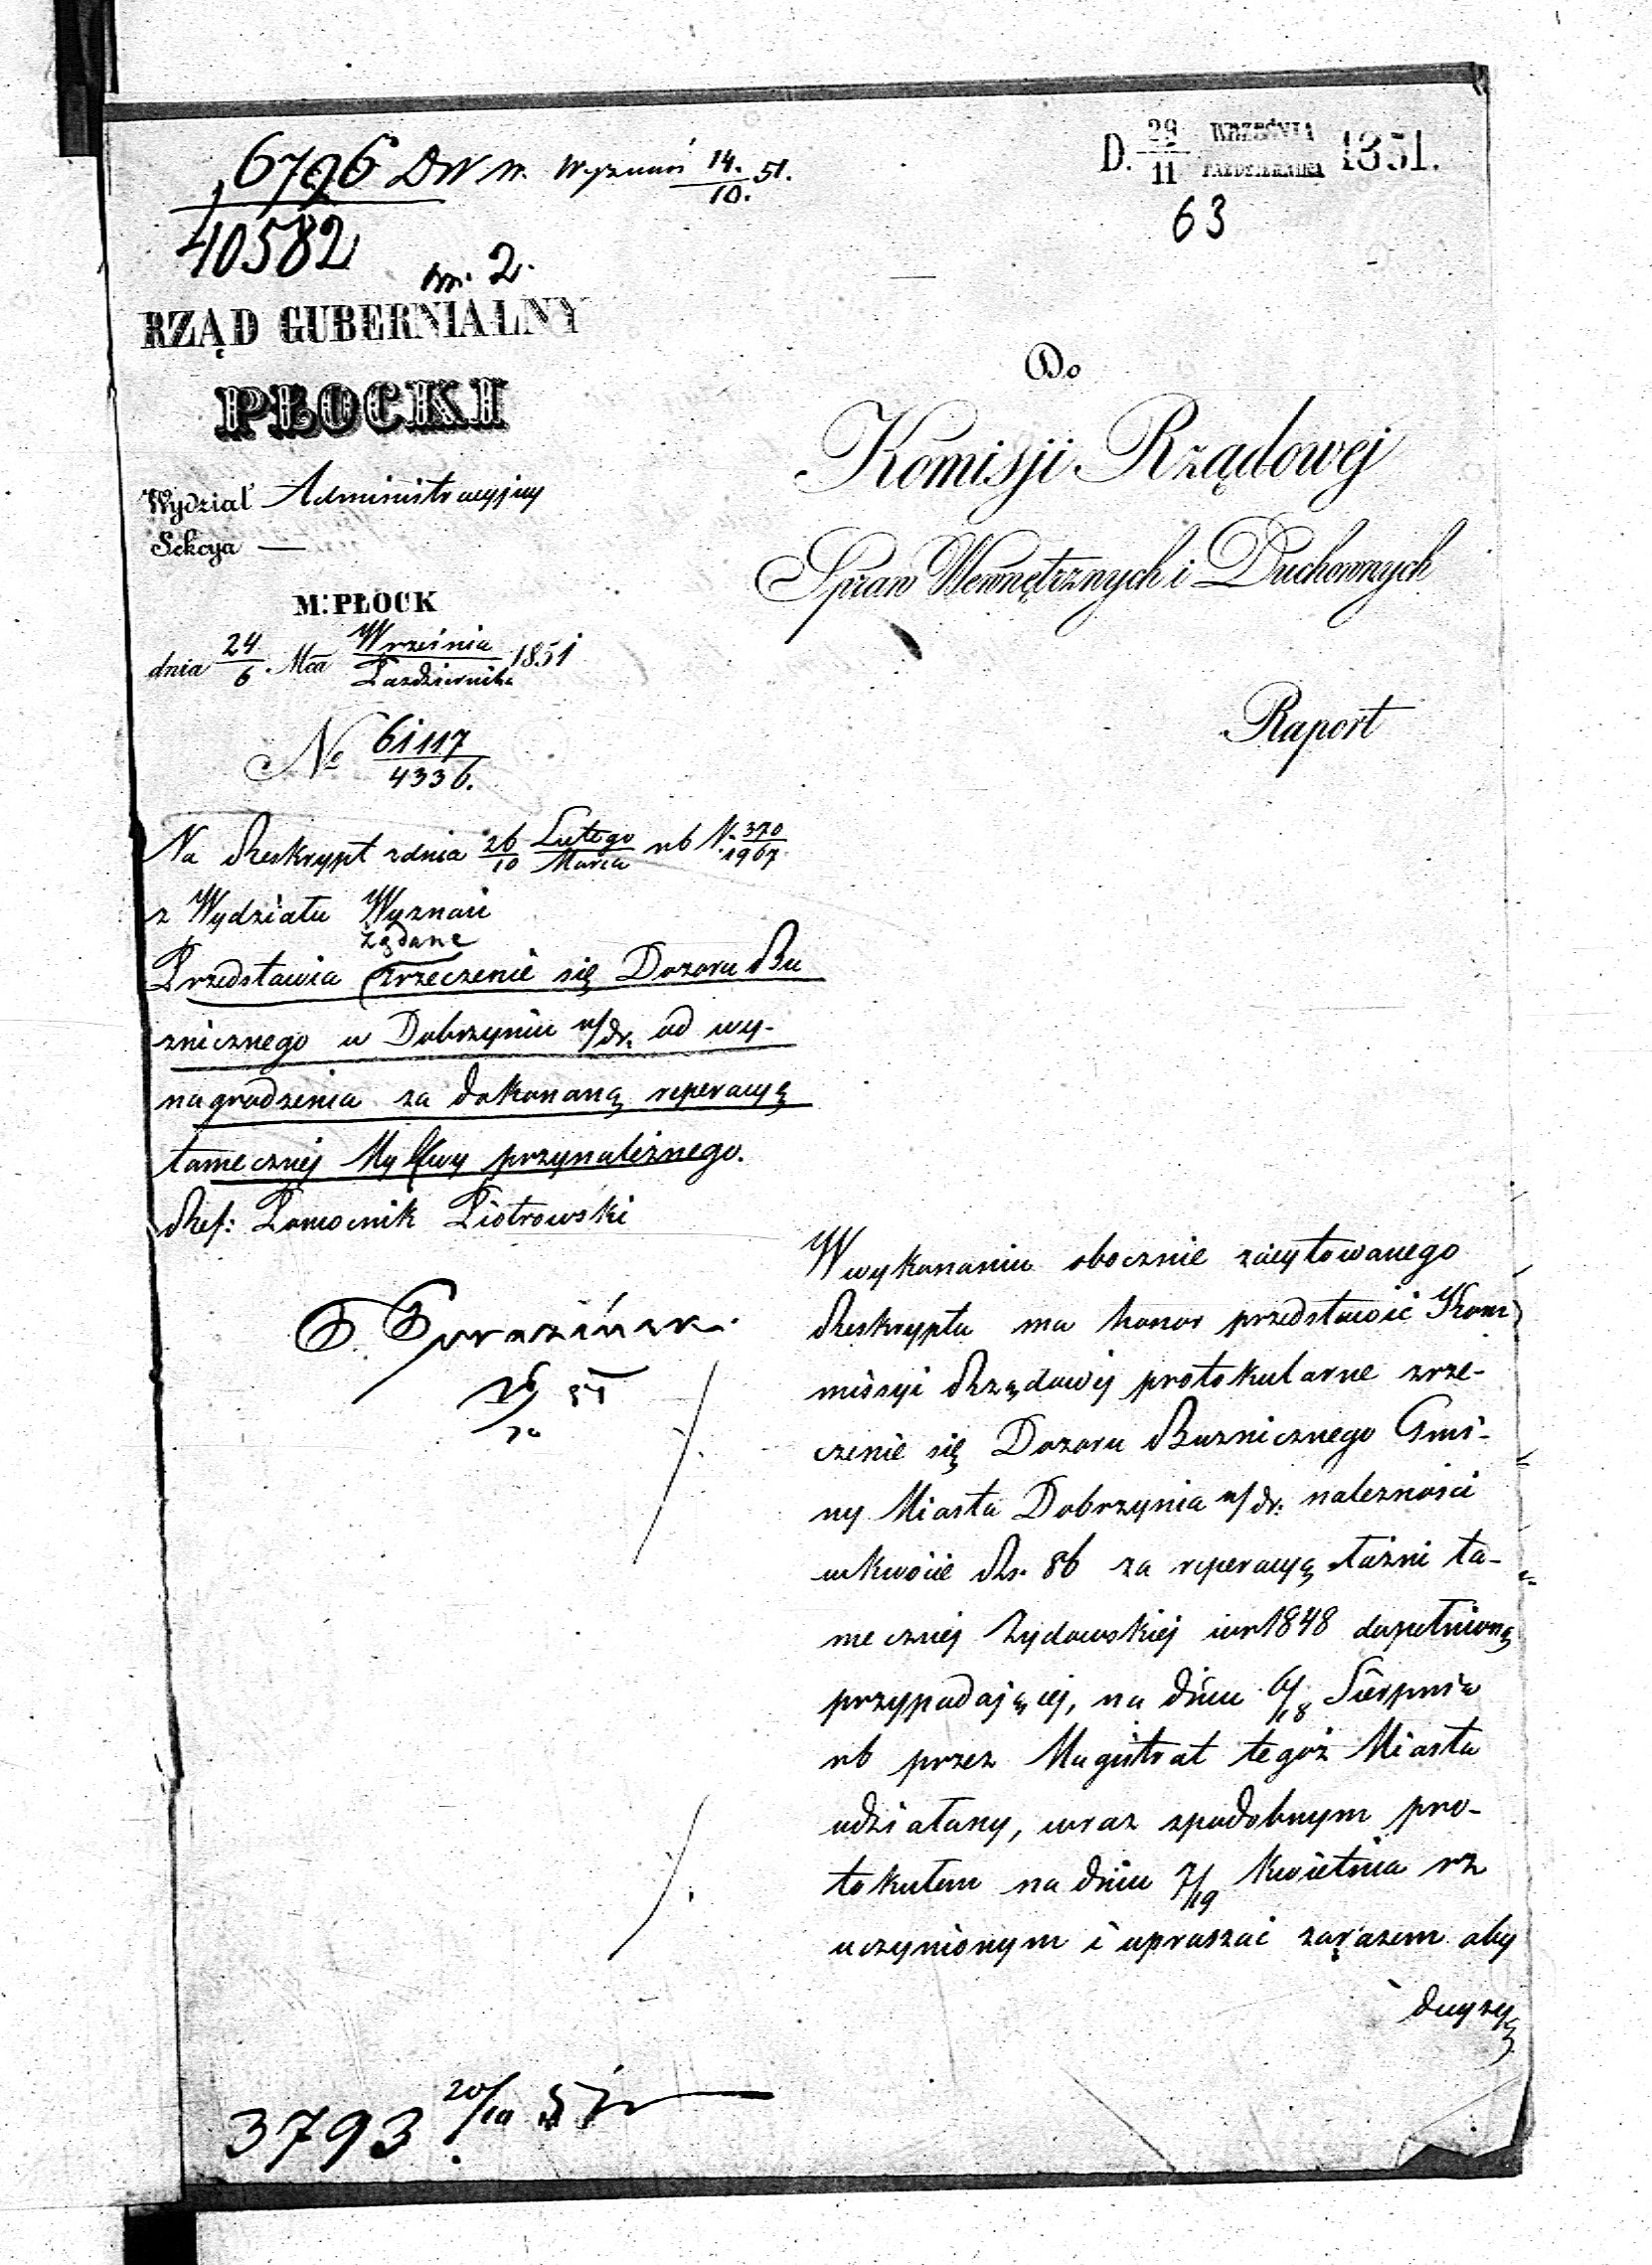 6796 DW m. Wyznań 14./10. 51.
40582
m. 2.
D. 29/11 WRZEŚNIA/PAŹDZIERNIKA 1851.
63
RZĄD GUBERNIALNY
PŁOCKI
Wydział Administracyjny
Sekcya —
M. PŁOCK
dnia 24/6. Mca Września/Października 1851
No 61117/4336.
Do
Komisji Rządowej
Spraw Wewnętrznych i Duchownych
Raport
Na Reskrypt z dnia 26/10 Lutego/Marca rb N. 370/1967.
z Wydziału Wyznań
żądane
Przedstawia zrzeczenie się Dozoru Bu
znicznego w Dobrzyniu n/dr. od wy-
nagrodzenia za dokonaną reperacyą
tamecznej Mykwy przynależnego.
Ref: Pomocnik Piotrowski
W wykonaniu obocznie zacytowanego
Reskryptu ma honor przedstawić Kom
missyi Rządowej protokularne zrze-
czenie się Dozoru Buznicznego Gmi-
ny Miasta Dobrzynia n/dr. należności
w kwocie Rs. 86 za reperacyą Łaźni ta-
mecznej Żydowskiej w r 1848 dopełnioną
przypadającej, na dniu 6/18 Sierpnia
rb przez Magistrat tegoż Miasta
zdziałany, wraz z podobnym pro-
tokułem na dniu 7/19 Kwietnia rz
uczynionym i upraszać zarazem aby
3793 20/10 51